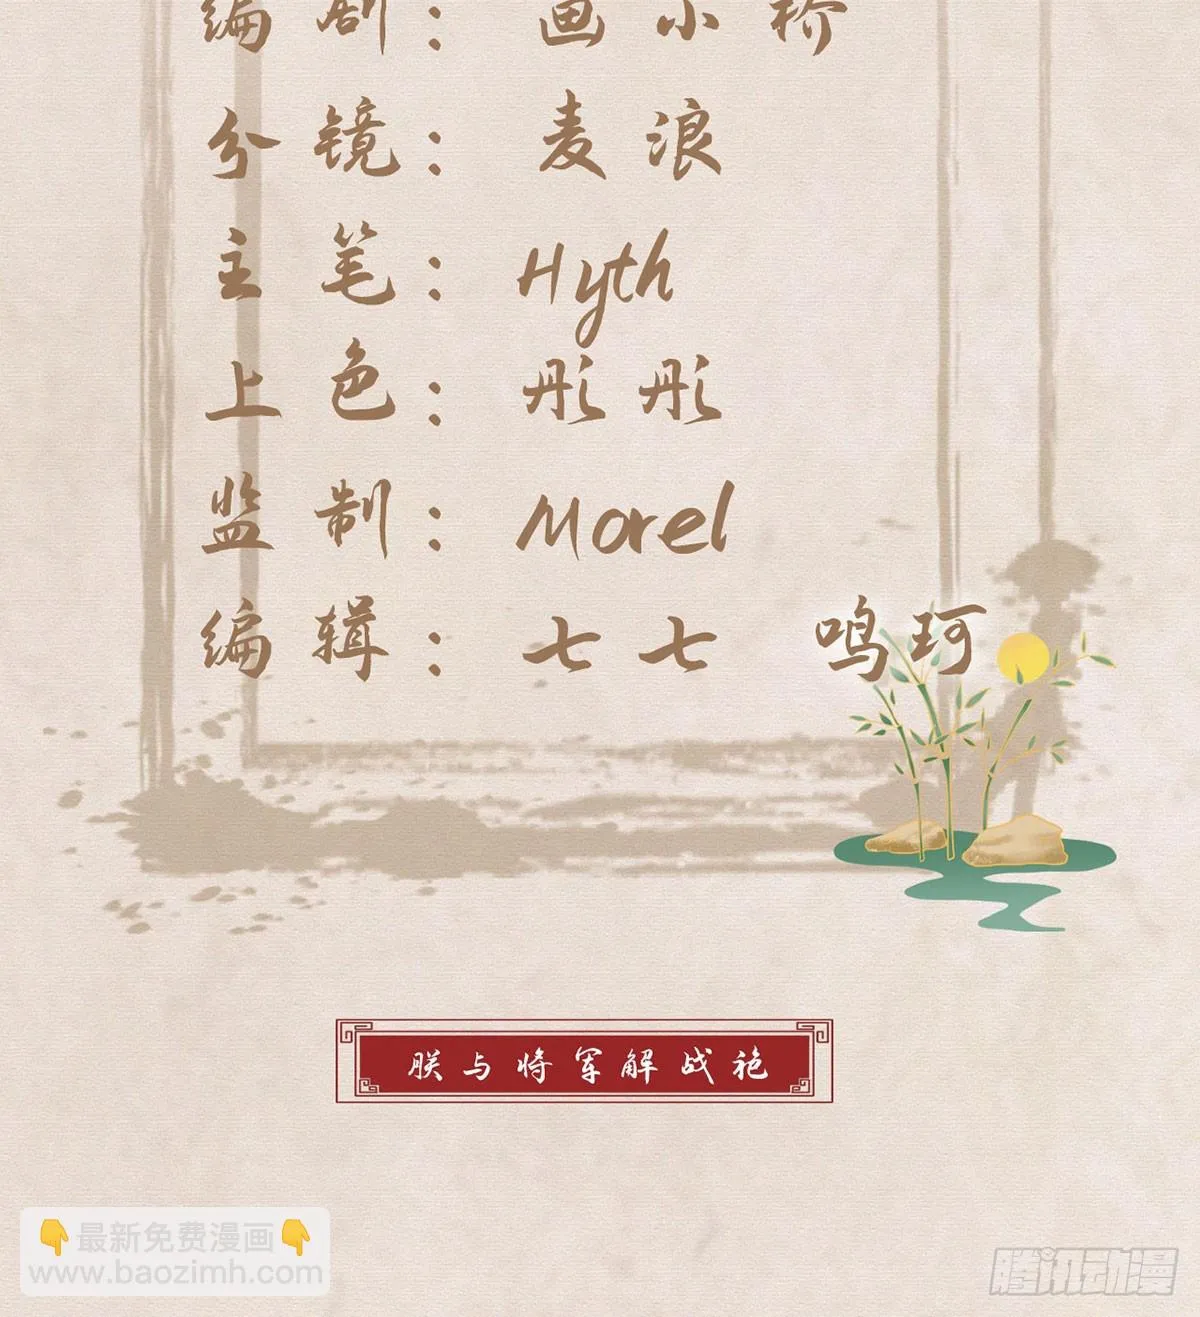 编剧：画小桥
分镜：麦浪
主笔：Hyth
上色：彤彤
监制：Morel
编辑：七七 鸣珂
朕与将军解战袍
👇最新免费漫画👇
www.baozimh.com
腾讯动漫